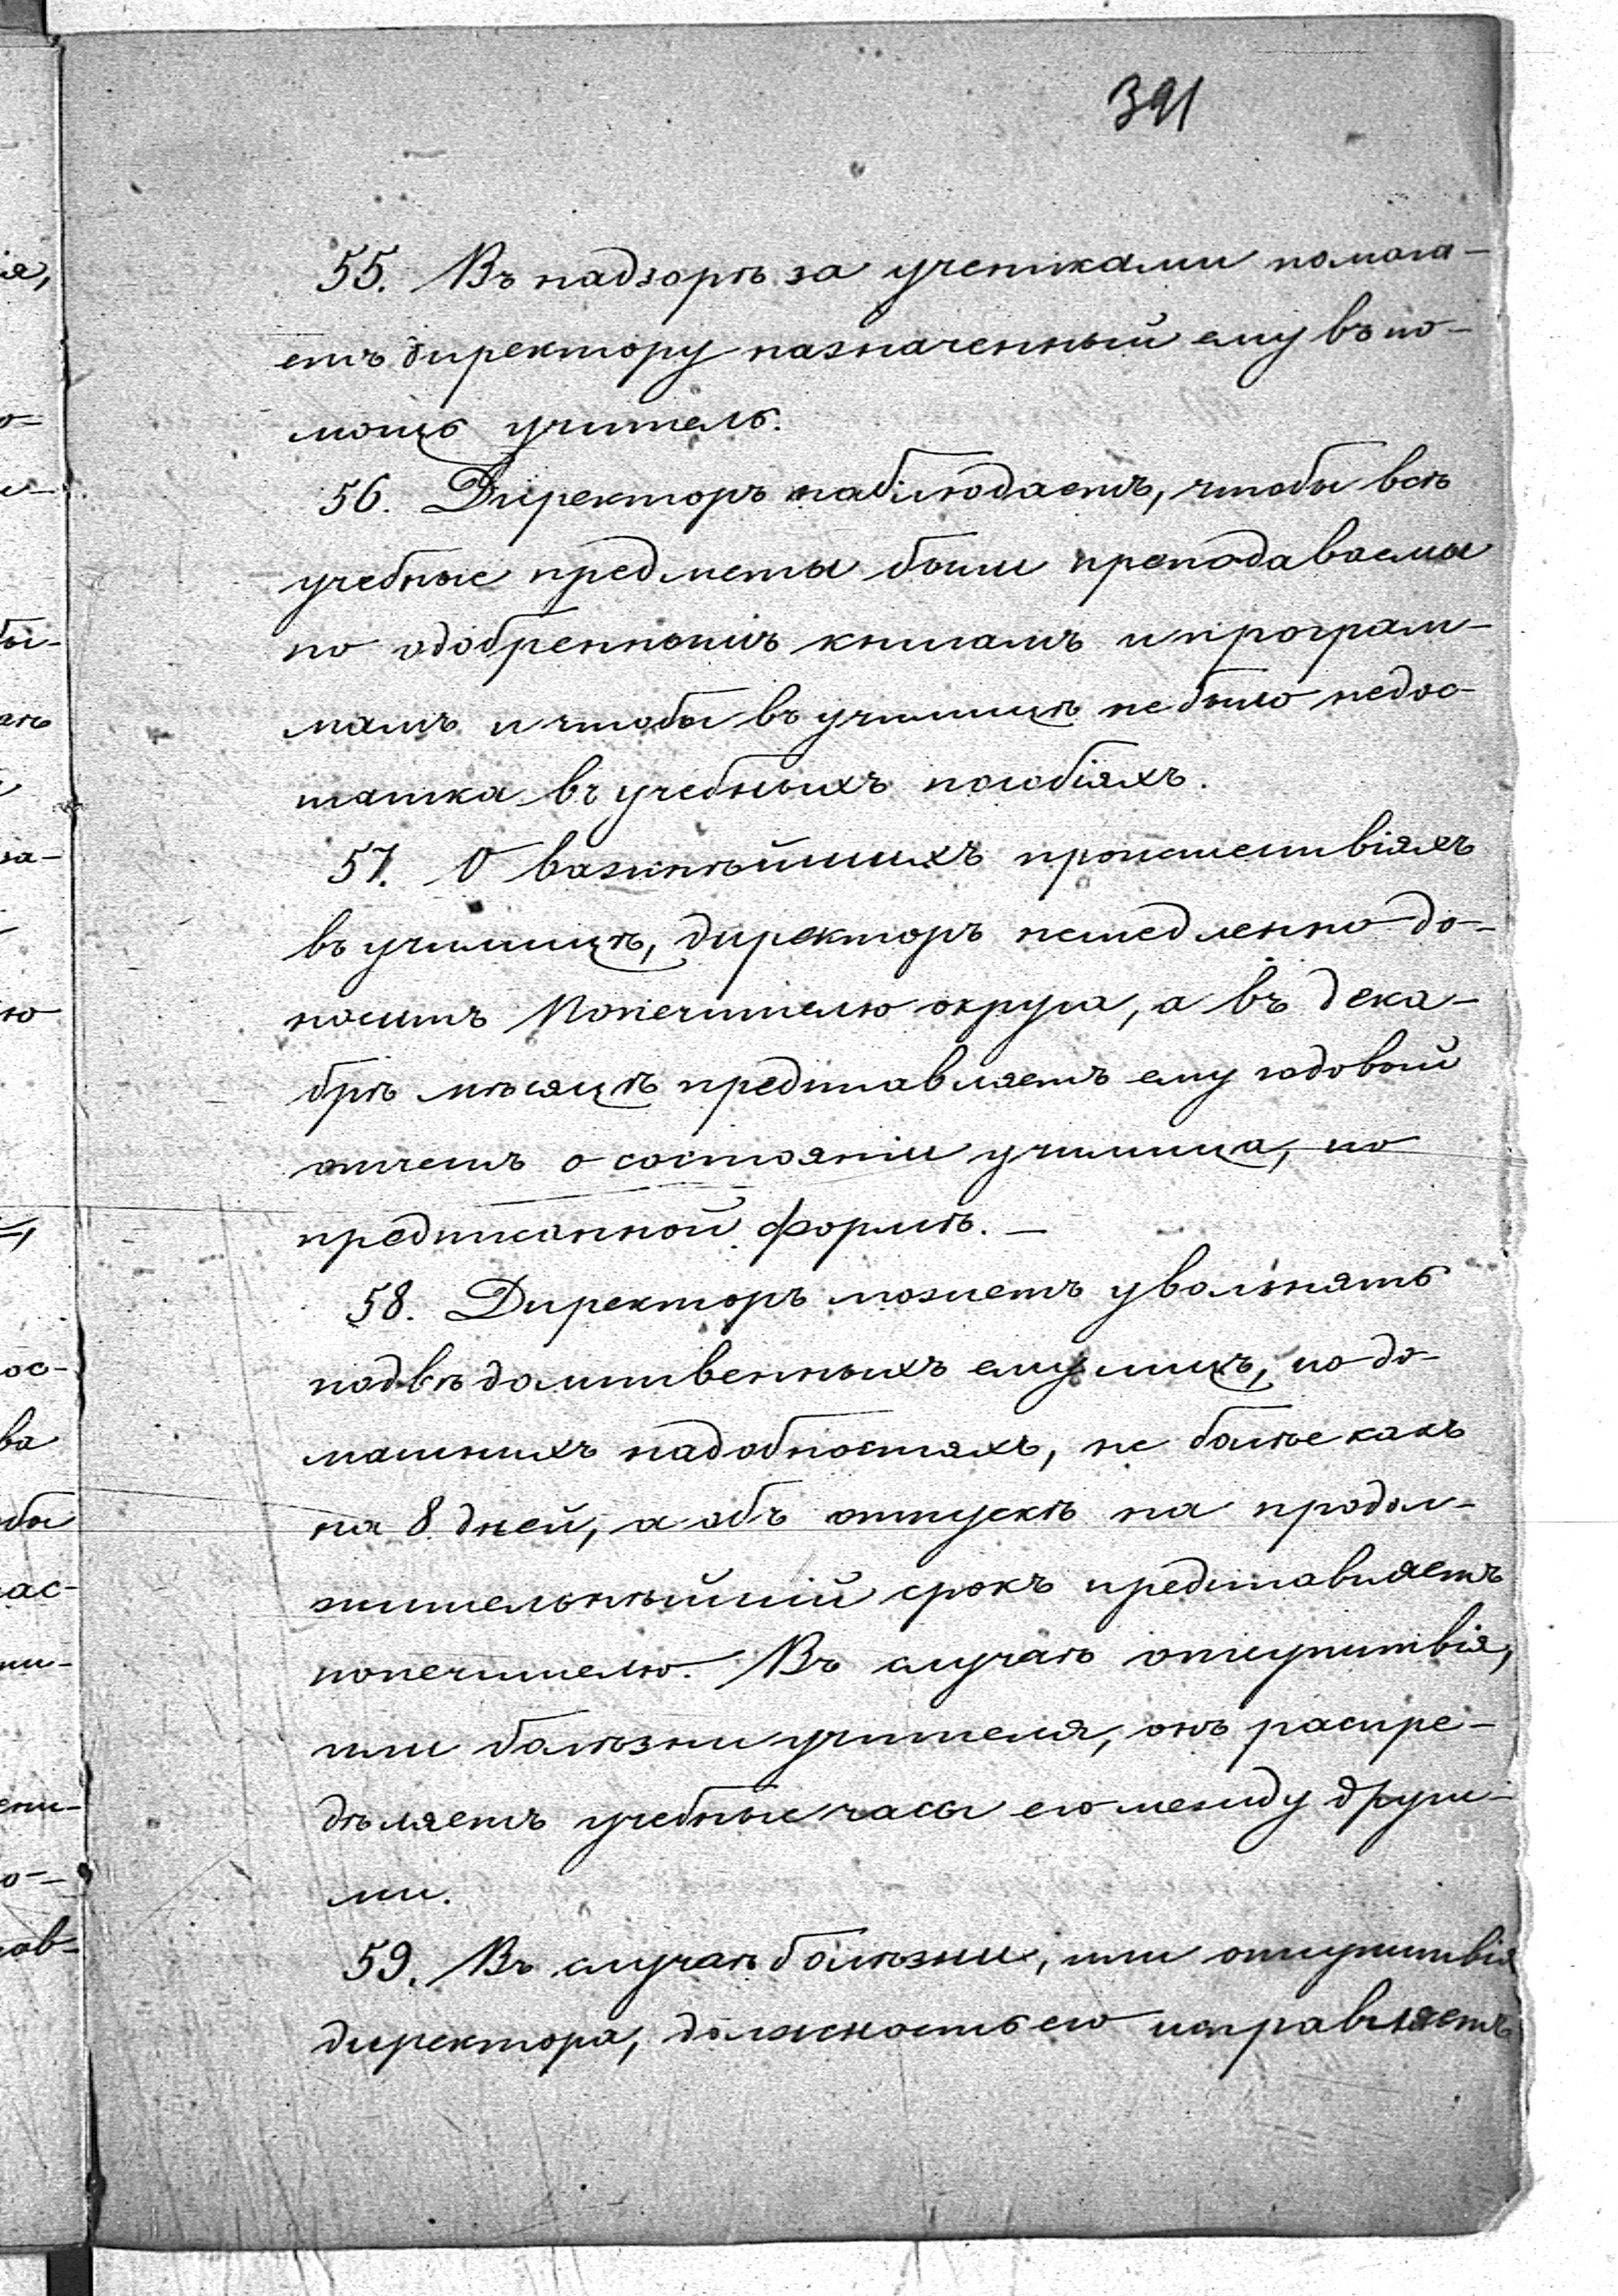 391
55. Въ надзорѣ за учениками помога-
етъ директору назначенный ему въ по-
мощь учитель.
56. Директоръ наблюдаетъ, чтобы всѣ
учебные предметы были преподаваемы
по одобреннымъ книгамъ и програм-
мамъ и чтобы въ училищѣ не было недос-
татка въ учебныхъ пособіяхъ.
57. О важнѣйшихъ происшествіяхъ
въ училищѣ, директоръ немедленно до-
носитъ Попечителю округа, а въ дека-
брѣ мѣсяцѣ представляетъ ему годовой
отчетъ о состояніи училища, по
предписанной формѣ. —
58. Директоръ можетъ увольнять
подвѣдомственныхъ ему лицъ, по до-
машнихъ надобностяхъ, не болѣе какъ
на 8 дней, а объ отпускѣ на продол-
жительнѣйшій срокъ представляетъ
попечителю. Въ случаѣ отсутствія,
или болѣзни учителя, онъ распре-
дѣляетъ учебные часы его между други-
ми.
59. Въ случаѣ болѣзни, или отсутствія
директора, должность его исправляетъ
ія,
о-
бы-
за-
ю
ос-
ва
обы
ас-
ни-
ени-
о-
ав-